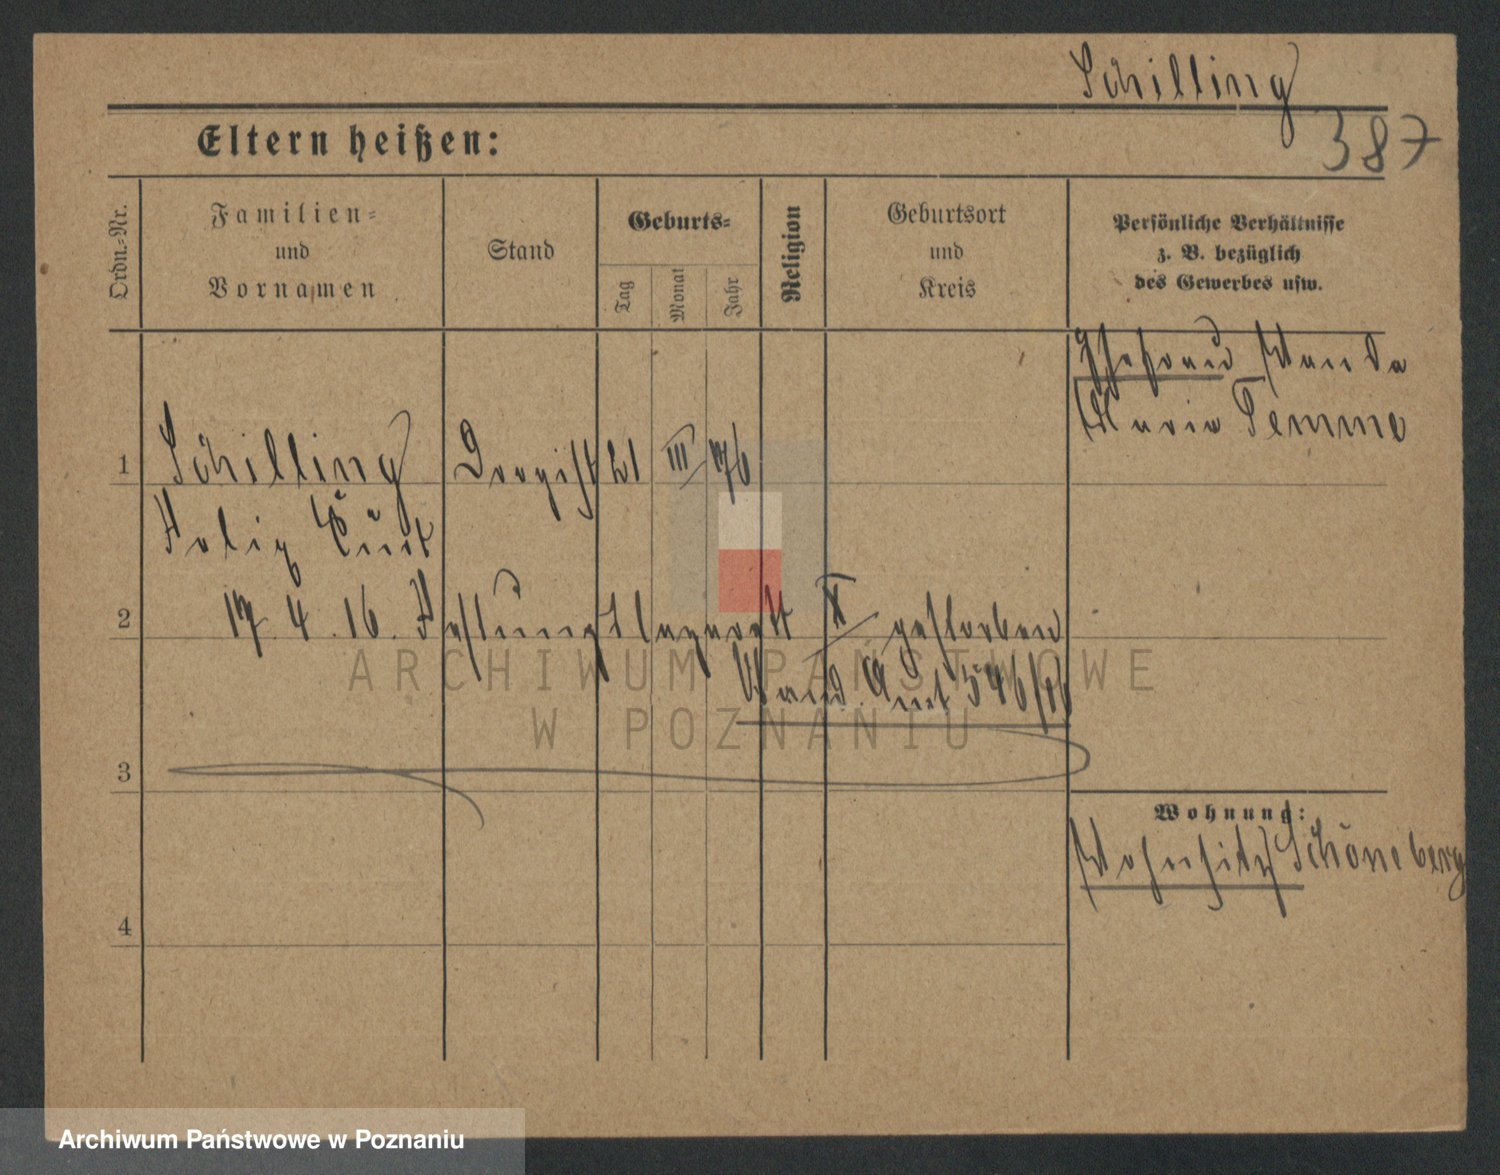 Schilling
387
Eltern heißen:
Ordn.-Nr.
Familien-
und
Vornamen
Stand
Geburts-
Tag
Monat
Jahr
Religion
Geburtsort
und
Kreis
Persönliche Verhältnisse
z. B. bezüglich
des Gewerbes usw.
Ehefrau Wanda
Maria Temme
1
Schilling
Drogist
21
III
76
Felix Curt
2
17. 4. 16. Festungslazarett
gestorben
Amt 546/16
3
Wohnung:
Wohnsitz Schöneberg
4
ARCHIWUM PAŃSTWOWE
W POZNANIU
Archiwum Państwowe w Poznaniu